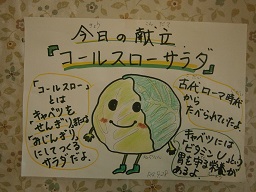 今日の献立
『コールスローサラダ』
「コールスロー」
とは
キャベツを
「せんぎり」又は
「みじんぎり」
にしてつくる
サラダだよ。
古代ローマ時代
から
たべられていたよ。
キャベツには
「ビタミンU」という
胃を守る栄養が
あるよ。